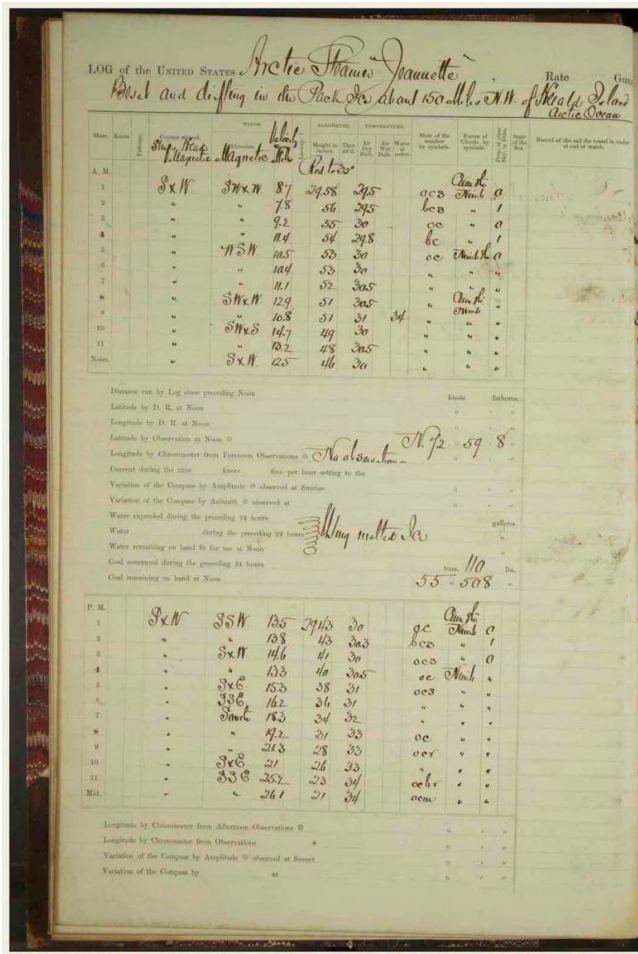 LOG of the UNITED STATES Arctic Steamer "Jeannette" Rate Guns
Beset and drifting in the Pack Ice about 150 Miles N.W. of Herald Island
Arctic Ocean
Hour. Knots Fathoms. Courses steered. WIND. BAROMETER. TEMPERATURE. State of the weather by symbols. Forms of Clouds by symbols. State of the Sea. Record of the sail the vessel is under at end of watch.
Ship's Head Magnetic Direction. Magnetic Velocity Leeway. Height in inches. Ther. att'd. Air Dry Bulb. Air Wet Bulb. Water at surface.
A. M.
1 SxW SWxW 8.7 29.58 29.5 ocs Cum Str Nimb 0
2 " " 7.8 56 29.5 bcs " 1
3 " " 9.2 55 30 oc " 0
4 " " 11.4 54 29.8 bc " 1
5 " WSW 10.5 53 30 oc 0
6 " " 10.4 53 30 " " "
7 " " 11.1 52 30.5 " " "
8 " SWxW 12.9 51 30.5 " Cum Str "
9 " " 10.8 51 31 34 " Nimb "
10 " SWxS 14.7 49 30 " " "
11 " " 13.2 48 30.5 " " "
Noon. " SxW 12.5 46 30 " " "
Distance run by Log since preceding Noon knots fathoms.
Latitude by D. R. at Noon
Longitude by D. R. at Noon
Latitude by Observation at Noon N. 72 59 8
Longitude by Chronometer from Forenoon Observations No observation
Current during the time knots fms. per hour setting to the
Variation of the Compass by Amplitude observed at Sunrise
Variation of the Compass by Azimuth observed at
Water expended during the preceding 24 hours gallons.
Water during the preceding 24 hours Using melted Ice
Water remaining on hand fit for use at Noon
Coal consumed during the preceding 24 hours tons. 110 lbs.
Coal remaining on hand at Noon 55 " 508 "
P. M.
1 SxW SSW 13.5 29.43 30 Cum Str Nimb 0
2 " " 13.8 43 30.3 bcs " 1
3 " SxW 14.6 41 30 ocs " 0
4 " " 13.3 40 30.5 oc Nimb "
5 " SxE 15.3 38 31 ocs " "
6 " SSE 16.2 36 31 " " "
7 " South 18.3 34 32 " " "
8 " " 19.2 31 33 oc " "
9 " " 21.3 28 33 ocr " "
10 " SxE 21 26 33 " " "
11 " SSE 25.2 23 34 " "
Mid. " " 26.1 21 34 ocm " "
Longitude by Chronometer from Afternoon Observations
Longitude by Chronometer from Observations
Variation of the Compass by Amplitude observed at Sunset
Variation of the Compass by at